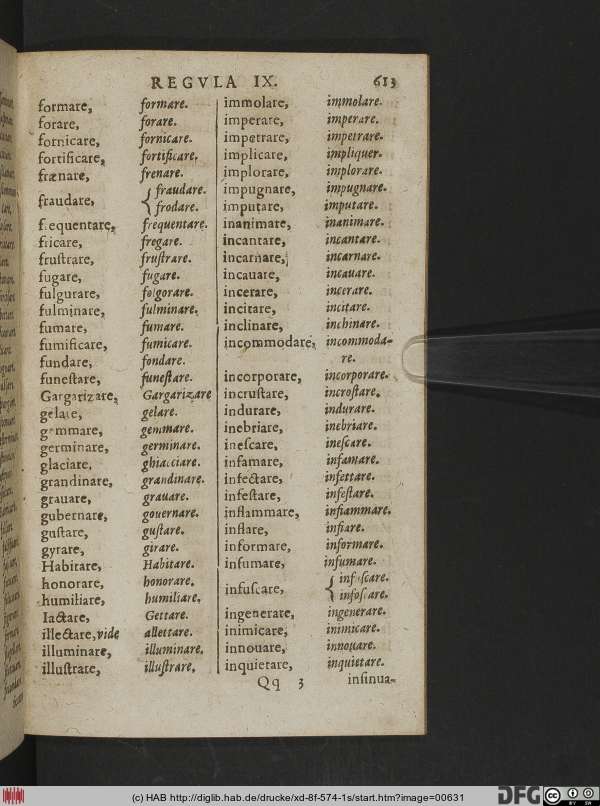 REGVLA IX. 613
formare, formare.
forare, forare.
fornicare, fornicare.
fortificare, fortificare.
frænare, frenare.
fraudare, fraudare.
frodare.
frequentare, frequentare.
fricare, fregare.
frustrare, frustrare.
fugare, fugare.
fulgurare, folgorare.
fulminare, fulminare.
fumare, fumare.
fumificare, fumicare.
fundare, fondare.
funestare, funestare.
Gargarizare, Gargarizare
gelare, gelare.
gemmare, gemmare.
germinare, germinare.
glaciare, ghiacciare.
grandinare, grandinare.
grauare, grauare.
gubernare, gouernare.
gustare, gustare.
gyrare, girare.
Habitare, Habitare.
honorare, honorare.
humiliare, humiliare.
Iactare, Gettare.
illectare, vide allettare.
illuminare, illuminare.
illustrare, illustrare,
immolare, immolare.
imperare, imperare.
impetrare, impetrare.
implicare, impliquer.
implorare, implorare.
impugnare, impugnare.
imputare, imputare.
inanimare, inanimare.
incantare, incantare.
incarnare, incarnare.
incauare, incauare.
incerare, incerare.
incitare, incitare.
inclinare, inchinare.
incommodare, incommoda-
re.
incorporare, incorporare.
incrustare, incrostare.
indurare, indurare.
inebriare, inebriare.
inescare, inescare.
infamare, infamare.
infectare, infettare.
infestare, infestare.
inflammare, infiammare.
inflare, infiare.
informare, informare.
infumare, infumare.
infuscare, infuscare.
infoscare.
ingenerare, ingenerare.
inimicare, inimicare.
innouare, innouare.
inquietare, inquietare.
Qq 3 insinua-
(c) HAB http://diglib.hab.de/drucke/xd-8f-574-1s/start.htm?image=00631
DFG
CC BY SA